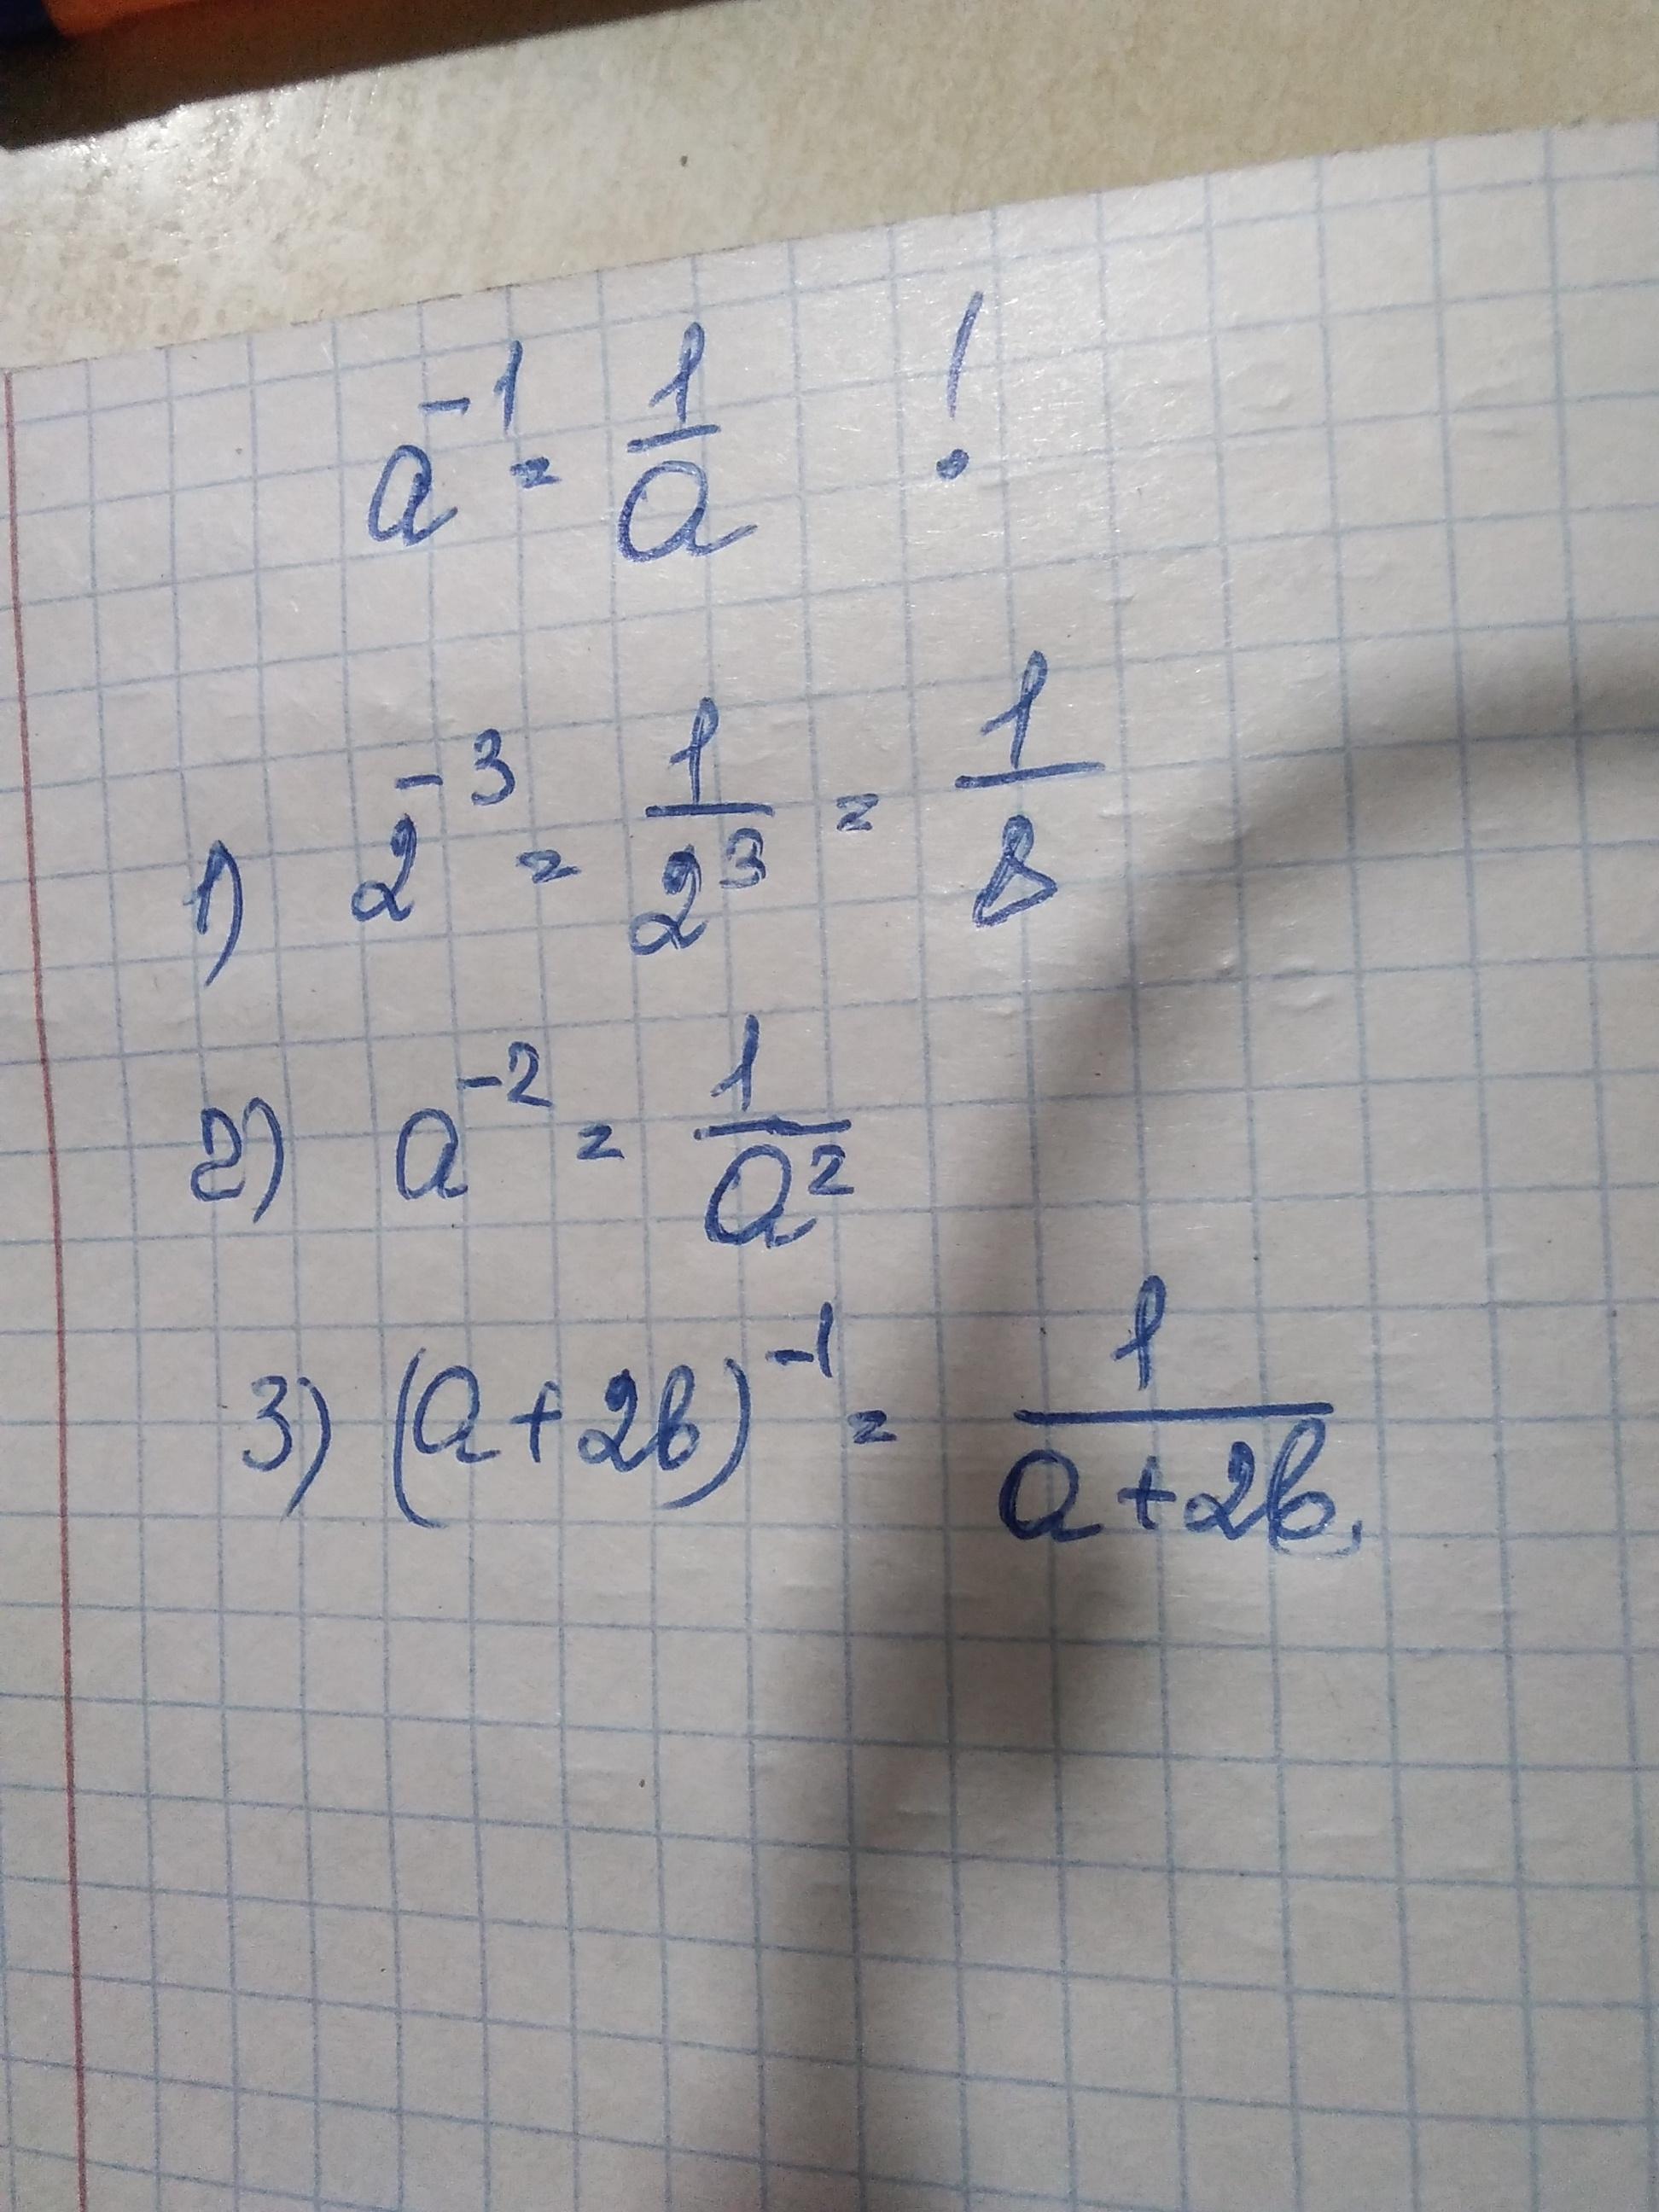 a⁻¹ = 1/a !
1) 2⁻³ = 1/2³ = 1/8
2) a⁻² = 1/a²
3) (a+2b)⁻¹ = 1/(a+2b)